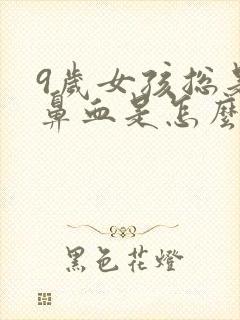 9歲女孩总是
鼻血是怎麼
黑色花燈